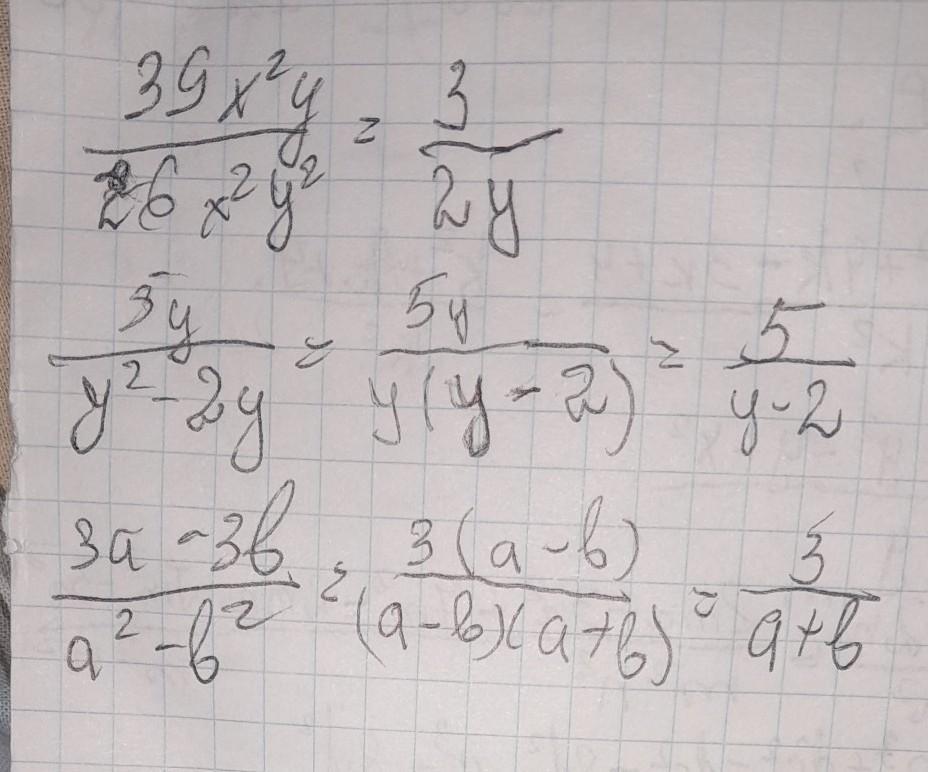 39x²y / 26x²y² = 3 / 2y
5y / y² - 2y = 5y / y(y - 2) = 5 / y - 2
3a - 3b / a² - b² = 3(a - b) / (a - b)(a + b) = 3 / a + b